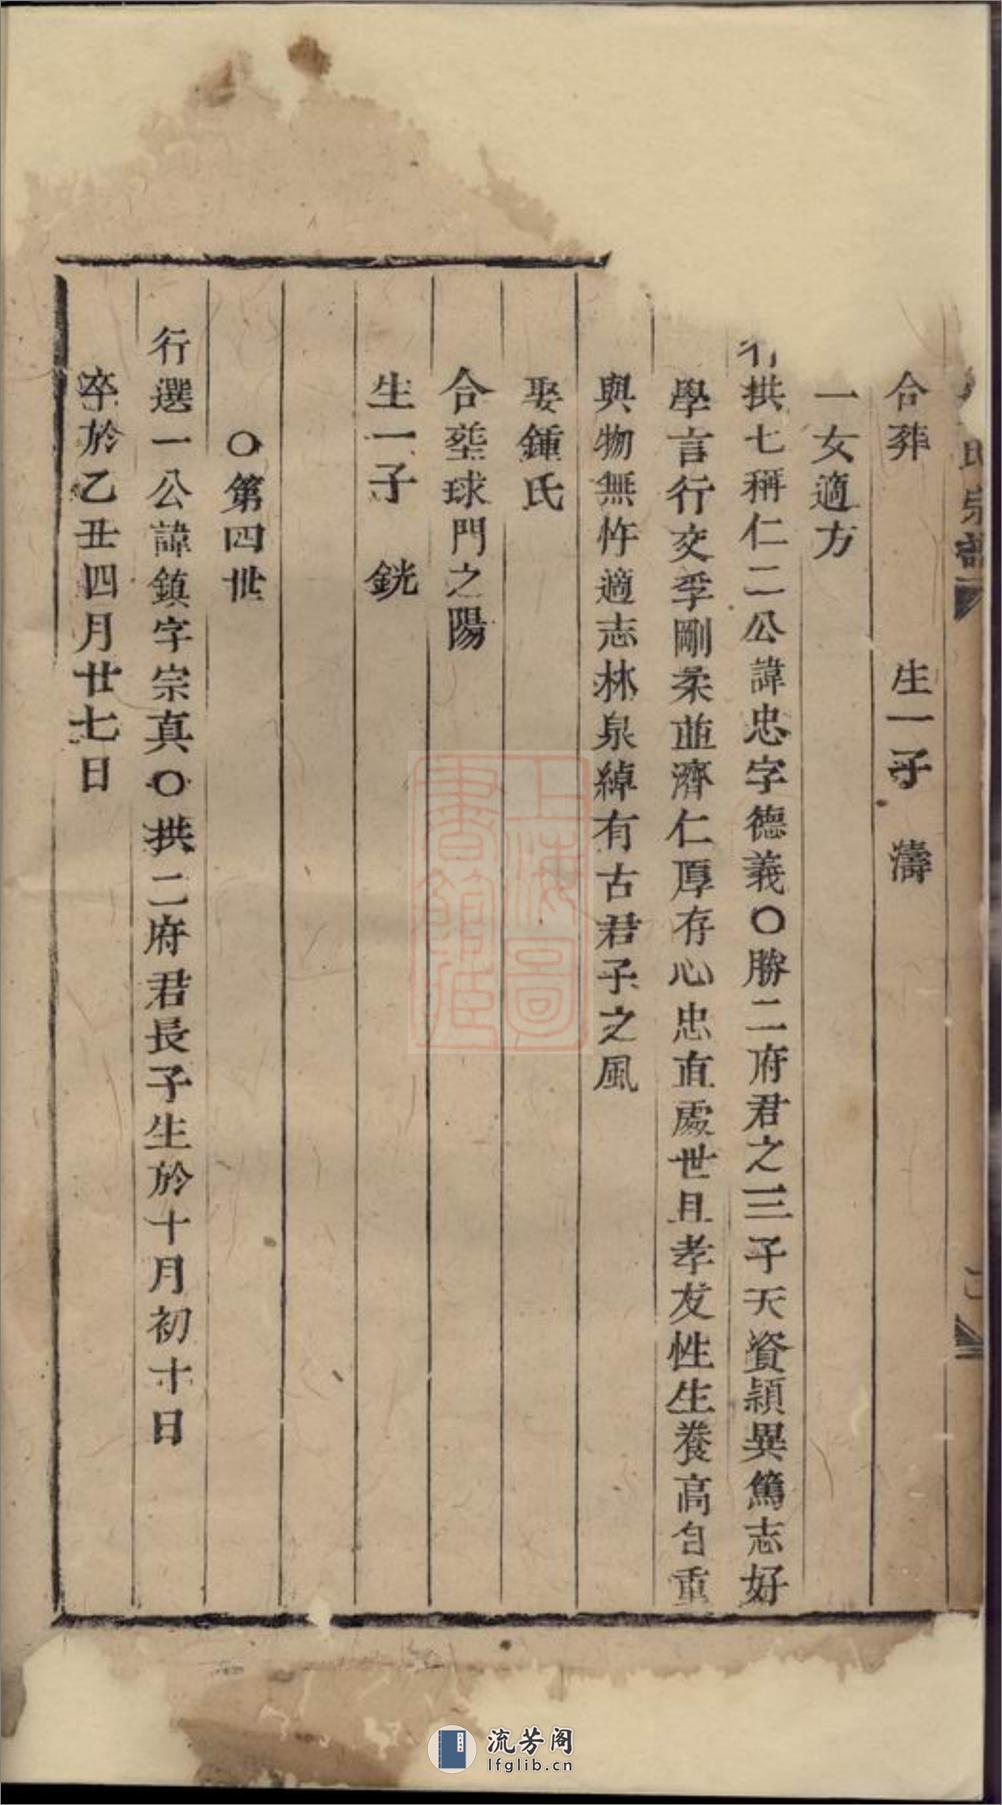 氏宗譜
合葬　生一子　濤
一女適方
行拱七稱仁二公諱忠字德義○勝二府君之三子天資穎異篤志好
學言行交孚剛柔並濟仁厚存心忠直處世且孝友性生養高自重
與物無忤適志林泉綽有古君子之風
娶鍾氏
合塟球門之陽
生一子　銧
○第四世
行選一公諱鎮字宗真○拱二府君長子生於十月初十日
卒於乙丑四月廿七日
上海圖書館藏
流芳阁
lfglib.cn